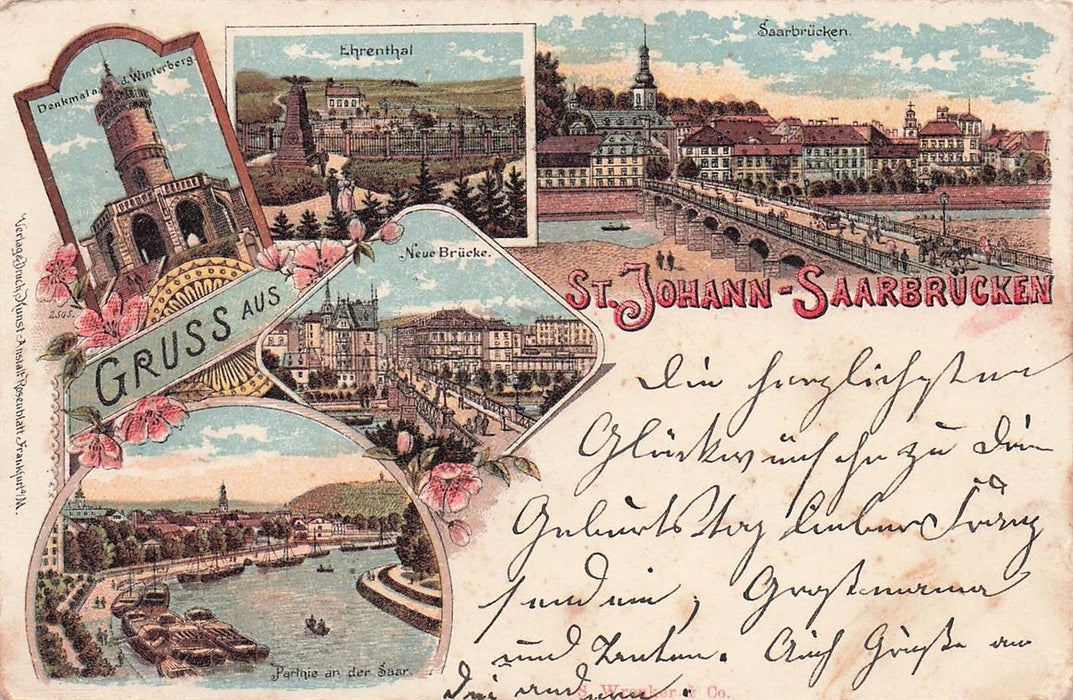 Denkmal a. d. Winterberg.
Ehrenthal
Saarbrücken.
Neue Brücke.
GRUSS AUS
ST. JOHANN-SAARBRÜCKEN
2505.
Verlag & Druck, Kunst-Anstalt Rosenblatt, Frankfurt a/M.
Parthie an der Saar.
Die herzlichsten
Glückwünsche zu Dein
Geburtstag lieber Franz
senden, Großmama
und Tanten. Auch Grüße an
die andern.
S. Wronker & Co.